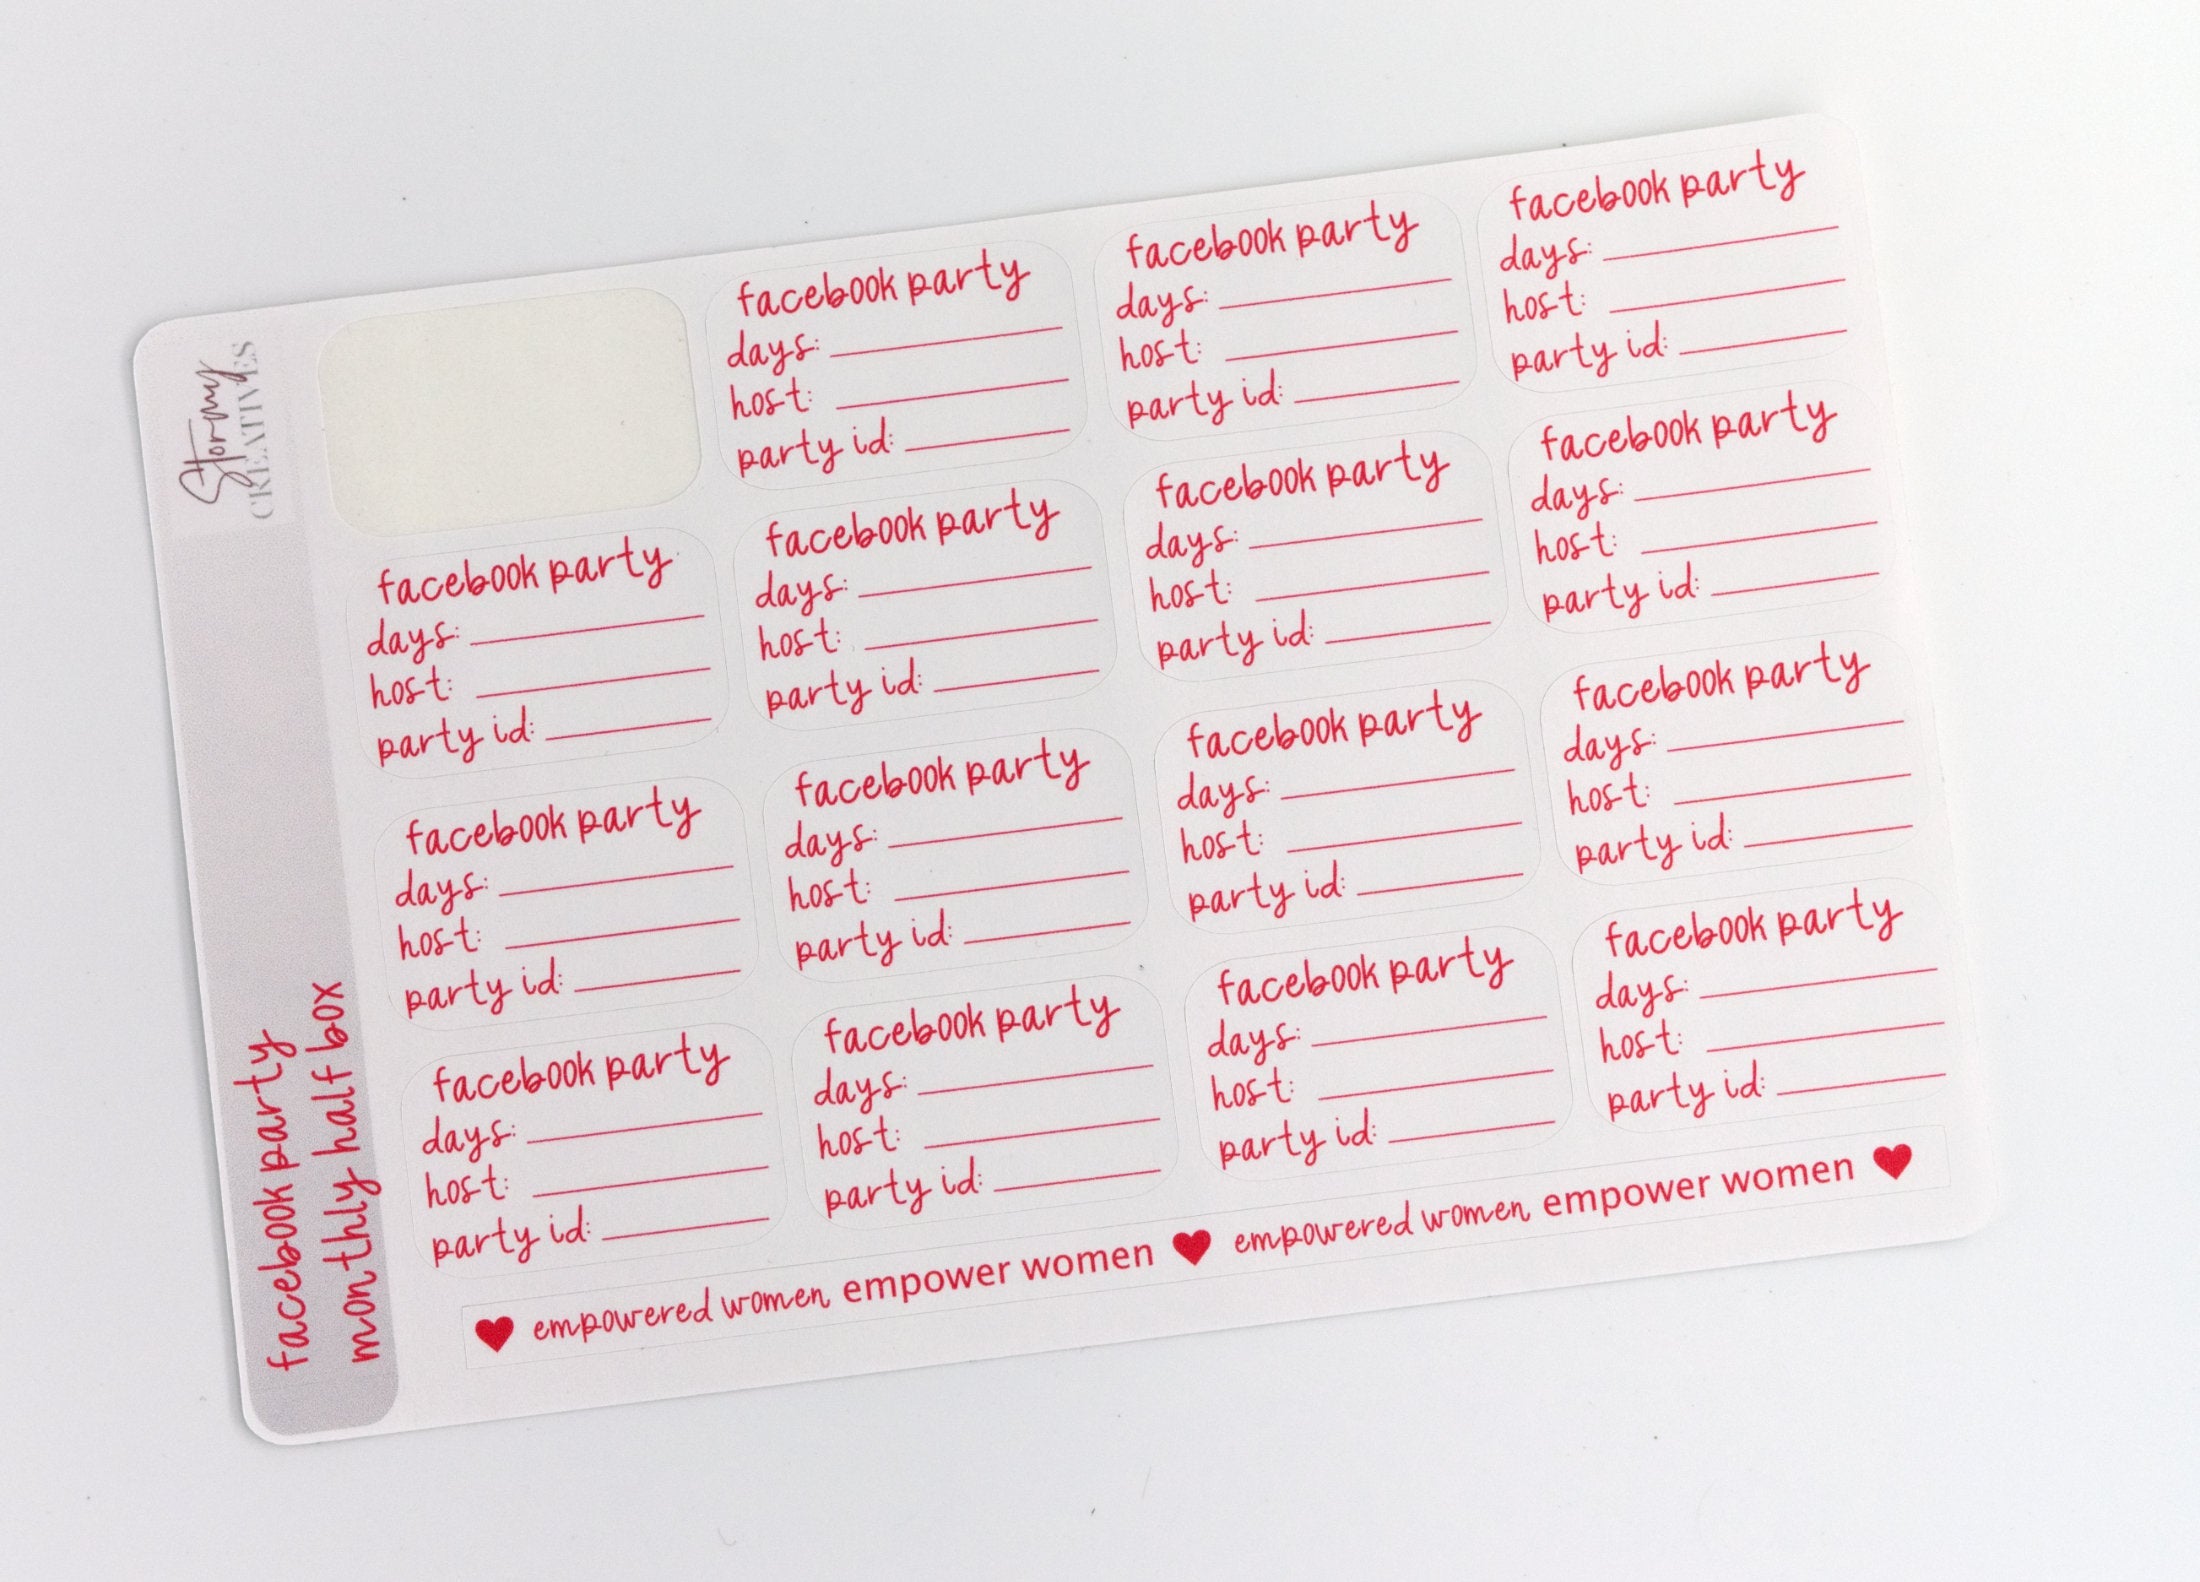 Stormy
CREATIVES
facebook party
monthly half box
facebook party
days:
host:
party id:
facebook party
days:
host:
party id:
facebook party
days:
host:
party id:
facebook party
days:
host:
party id:
facebook party
days:
host:
party id:
facebook party
days:
host:
party id:
facebook party
days:
host:
party id:
facebook party
days:
host:
party id:
facebook party
days:
host:
party id:
facebook party
days:
host:
party id:
facebook party
days:
host:
party id:
facebook party
days:
host:
party id:
facebook party
days:
host:
party id:
facebook party
days:
host:
party id:
facebook party
days:
host:
party id:
♥ empowered women empower women ♥ empowered women empower women ♥